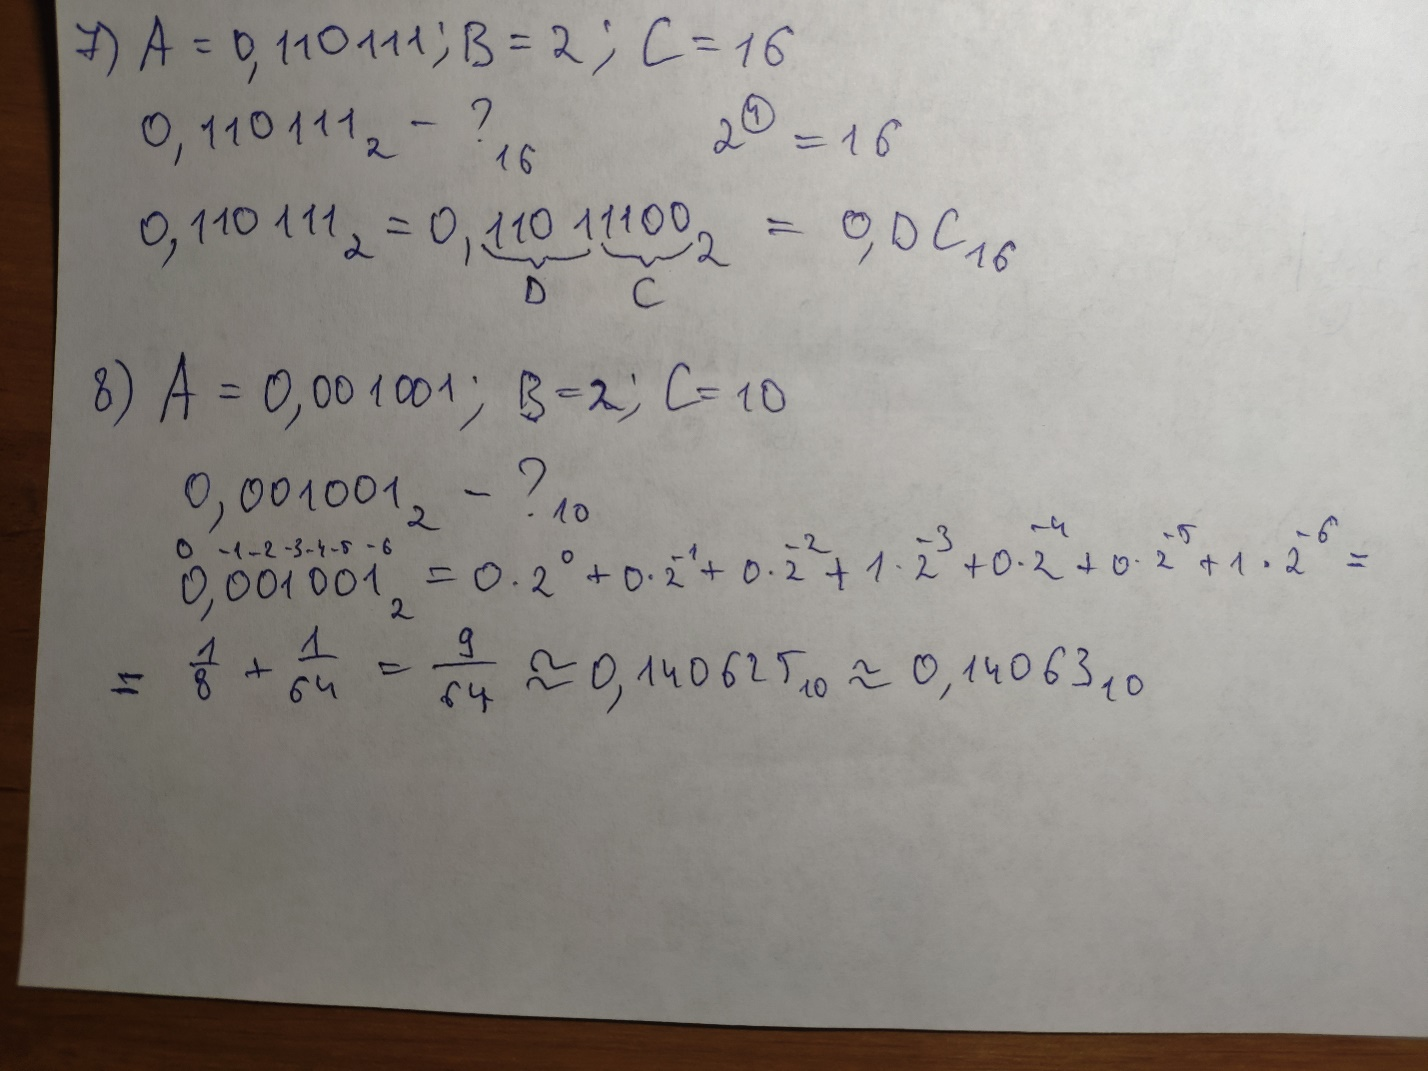 7) A = 0,110111; B = 2; C = 16
0,110111₂ − ?₁₆ 2⁴ = 16
0,110111₂ = 0,11011100₂ = 0,DC₁₆
D C
8) A = 0,001001; B = 2; C = 10
0,001001₂ − ?₁₀
0 -1 -2 -3 -4 -5 -6
0,001001₂ = 0·2⁰ + 0·2⁻¹ + 0·2⁻² + 1·2⁻³ + 0·2⁻⁴ + 0·2⁻⁵ + 1·2⁻⁶ =
= 1/8 + 1/64 = 9/64 ≈ 0,140625₁₀ ≈ 0,14063₁₀